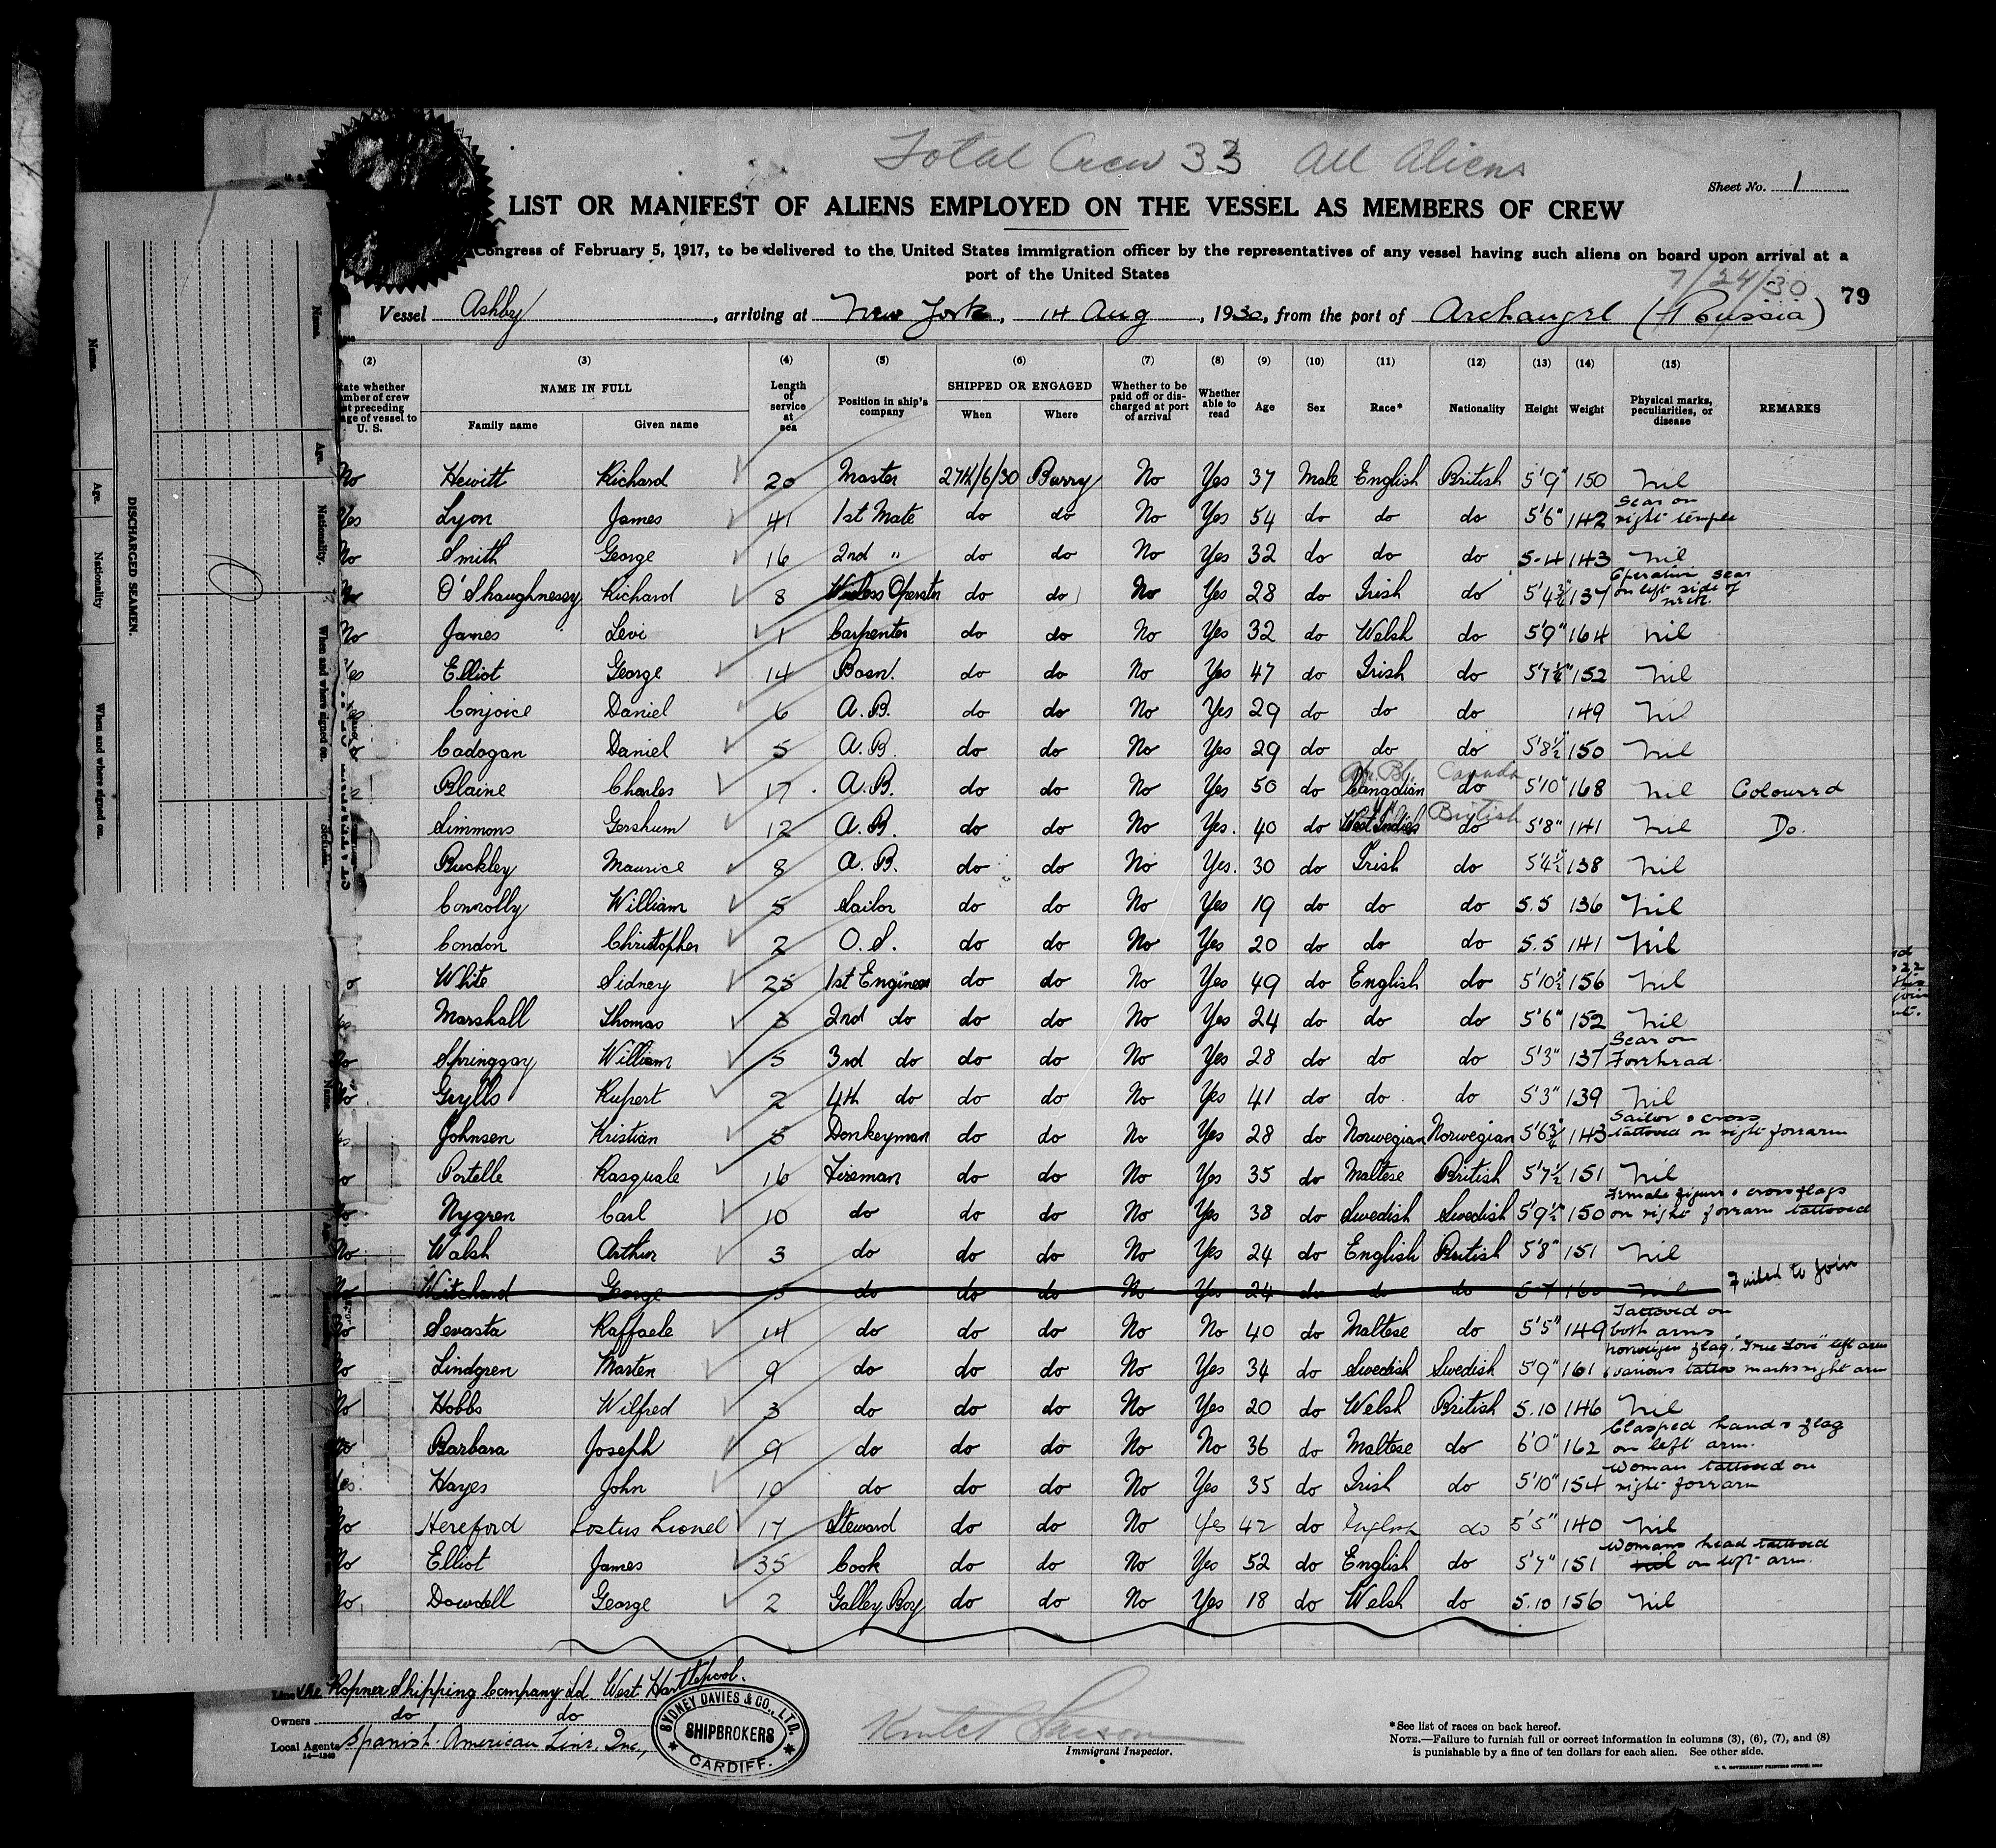 Total Crew 33 All Aliens
Sheet No. 1
LIST OR MANIFEST OF ALIENS EMPLOYED ON THE VESSEL AS MEMBERS OF CREW
Congress of February 5, 1917, to be delivered to the United States immigration officer by the representatives of any vessel having such aliens on board upon arrival at a
port of the United States
7/24/30
79
Vessel Ashby, arriving at New York, 14 Aug, 1930, from the port of Archangel (Russia)
(2) (3) (4) (5) (6) (7) (8) (9) (10) (11) (12) (13) (14) (15)
NAME IN FULL
Family name Given name
Length of service at sea
Position in ship's company
SHIPPED OR ENGAGED
When Where
Whether to be paid off or discharged at port of arrival
Whether able to read
Age Sex Race* Nationality Height Weight
Physical marks, peculiarities, or disease
REMARKS
No Hewitt Richard 20 Master 27th/6/30 Barry No Yes 37 Male English British 5'9" 150 Nil
Yes Lyon James 41 1st Mate do do No Yes 54 do do do 5'6" 142 Scar on right temple
No Smith George 16 2nd " do do No Yes 32 do do do 5-4 143 Nil
No O'Shaughnessy Richard 8 Wireless Operator do do No Yes 28 do Irish do 5'4¾ 137 Operation scar on left side of neck.
No James Levi 1 Carpenter do do No Yes 32 do Welsh do 5'9" 164 Nil
Yes Elliot George 14 Bosn. do do No Yes 47 do Irish do 5'7½" 152 Nil
Conjoice Daniel 6 A.B. do do No Yes 29 do do do 149 Nil
Cadogan Daniel 5 A.B. do do No Yes 29 do do do 5'8½ 150 Nil
Blaine Charles 17 A.B. do do No Yes 50 do Afr. Bl. Canadian Canada do 5'10" 168 Nil Coloured
Simmons Gershum 12 A.B. do do No Yes. 40 do West Indies British do 5'8" 141 Nil Do.
Buckley Maurice 8 A.B. do do No Yes. 30 do Irish do 5'4½ 138 Nil
Connolly William 5 Sailor do do No Yes 19 do do do 5.5 136 Nil
Condon Christopher 2 O.S. do do No Yes 20 do do do 5.5 141 Nil
White Sidney 25 1st Engineer do do No Yes 49 do English do 5'10½ 156 Nil
Marshall Thomas 3 2nd do do do No Yes 24 do do do 5'6" 152 Nil
No Springgay William 5 3rd do do do No Yes 28 do do do 5'3" 137 Scar on Forehead.
No Grylls Rupert 2 4th do do do No Yes 41 do do do 5'3" 139 Nil
Johnsen Kristian 5 Donkeyman do do No Yes 28 do Norwegian Norwegian 5'6¾ 143 Sailor & cross tattooed on right forearm
Portelle Pasquale 16 Fireman do do No Yes 35 do Maltese British 5'7½ 151 Nil
No Nygren Carl 10 do do do No Yes 38 do Swedish Swedish 5'9½" 150 Female figure & cross flags on right forearm tattooed
No Walsh Arthur 3 do do do No Yes 24 do English British 5'8" 151 Nil
No Witchard George 5 do do do No Yes 24 do do do 5-7 160 Nil Failed to join
No Sevasta Raffaele 14 do do do No No 40 do Maltese do 5'5" 149 Tattooed on both arms
No Lindgren Marten 9 do do do No Yes 34 do Swedish Swedish 5'9" 161 Norwegian flag, "True Love" left arm & various tattoo marks right arm
No Hobbs Wilfred 3 do do do No Yes 20 do Welsh British 5.10 146 Nil
No Barbara Joseph 9 do do do No No 36 do Maltese do 6'0" 162 Clasped hands flag on left arm.
Yes. Hayes John 10 do do do No Yes 35 do Irish do 5'10" 154 Woman tattooed on right forearm
No Hereford Lionel 17 Steward do do No Yes 42 do English do 5'5" 140 Nil
No Elliot James 35 Cook do do No Yes 52 do English do 5'7" 151 Womans head tattooed on left arm.
No Dowdell George 2 Galley Boy do do No Yes 18 do Welsh do 5.10 156 Nil
Line The Ropner Shipping Company Ld. West Hartlepool.
Owners do do
Local Agents Spanish-American Line, Inc.,
14—1240
SYDNEY DAVIES & CO., LTD.
SHIPBROKERS
CARDIFF.
Immigrant Inspector.
*See list of races on back hereof.
NOTE.—Failure to furnish full or correct information in columns (3), (6), (7), and (8)
is punishable by a fine of ten dollars for each alien. See other side.
DISCHARGED SEAMEN.
Name. Age. Nationality When and where signed on.
Name. Age. Nationality. When and where signed on.